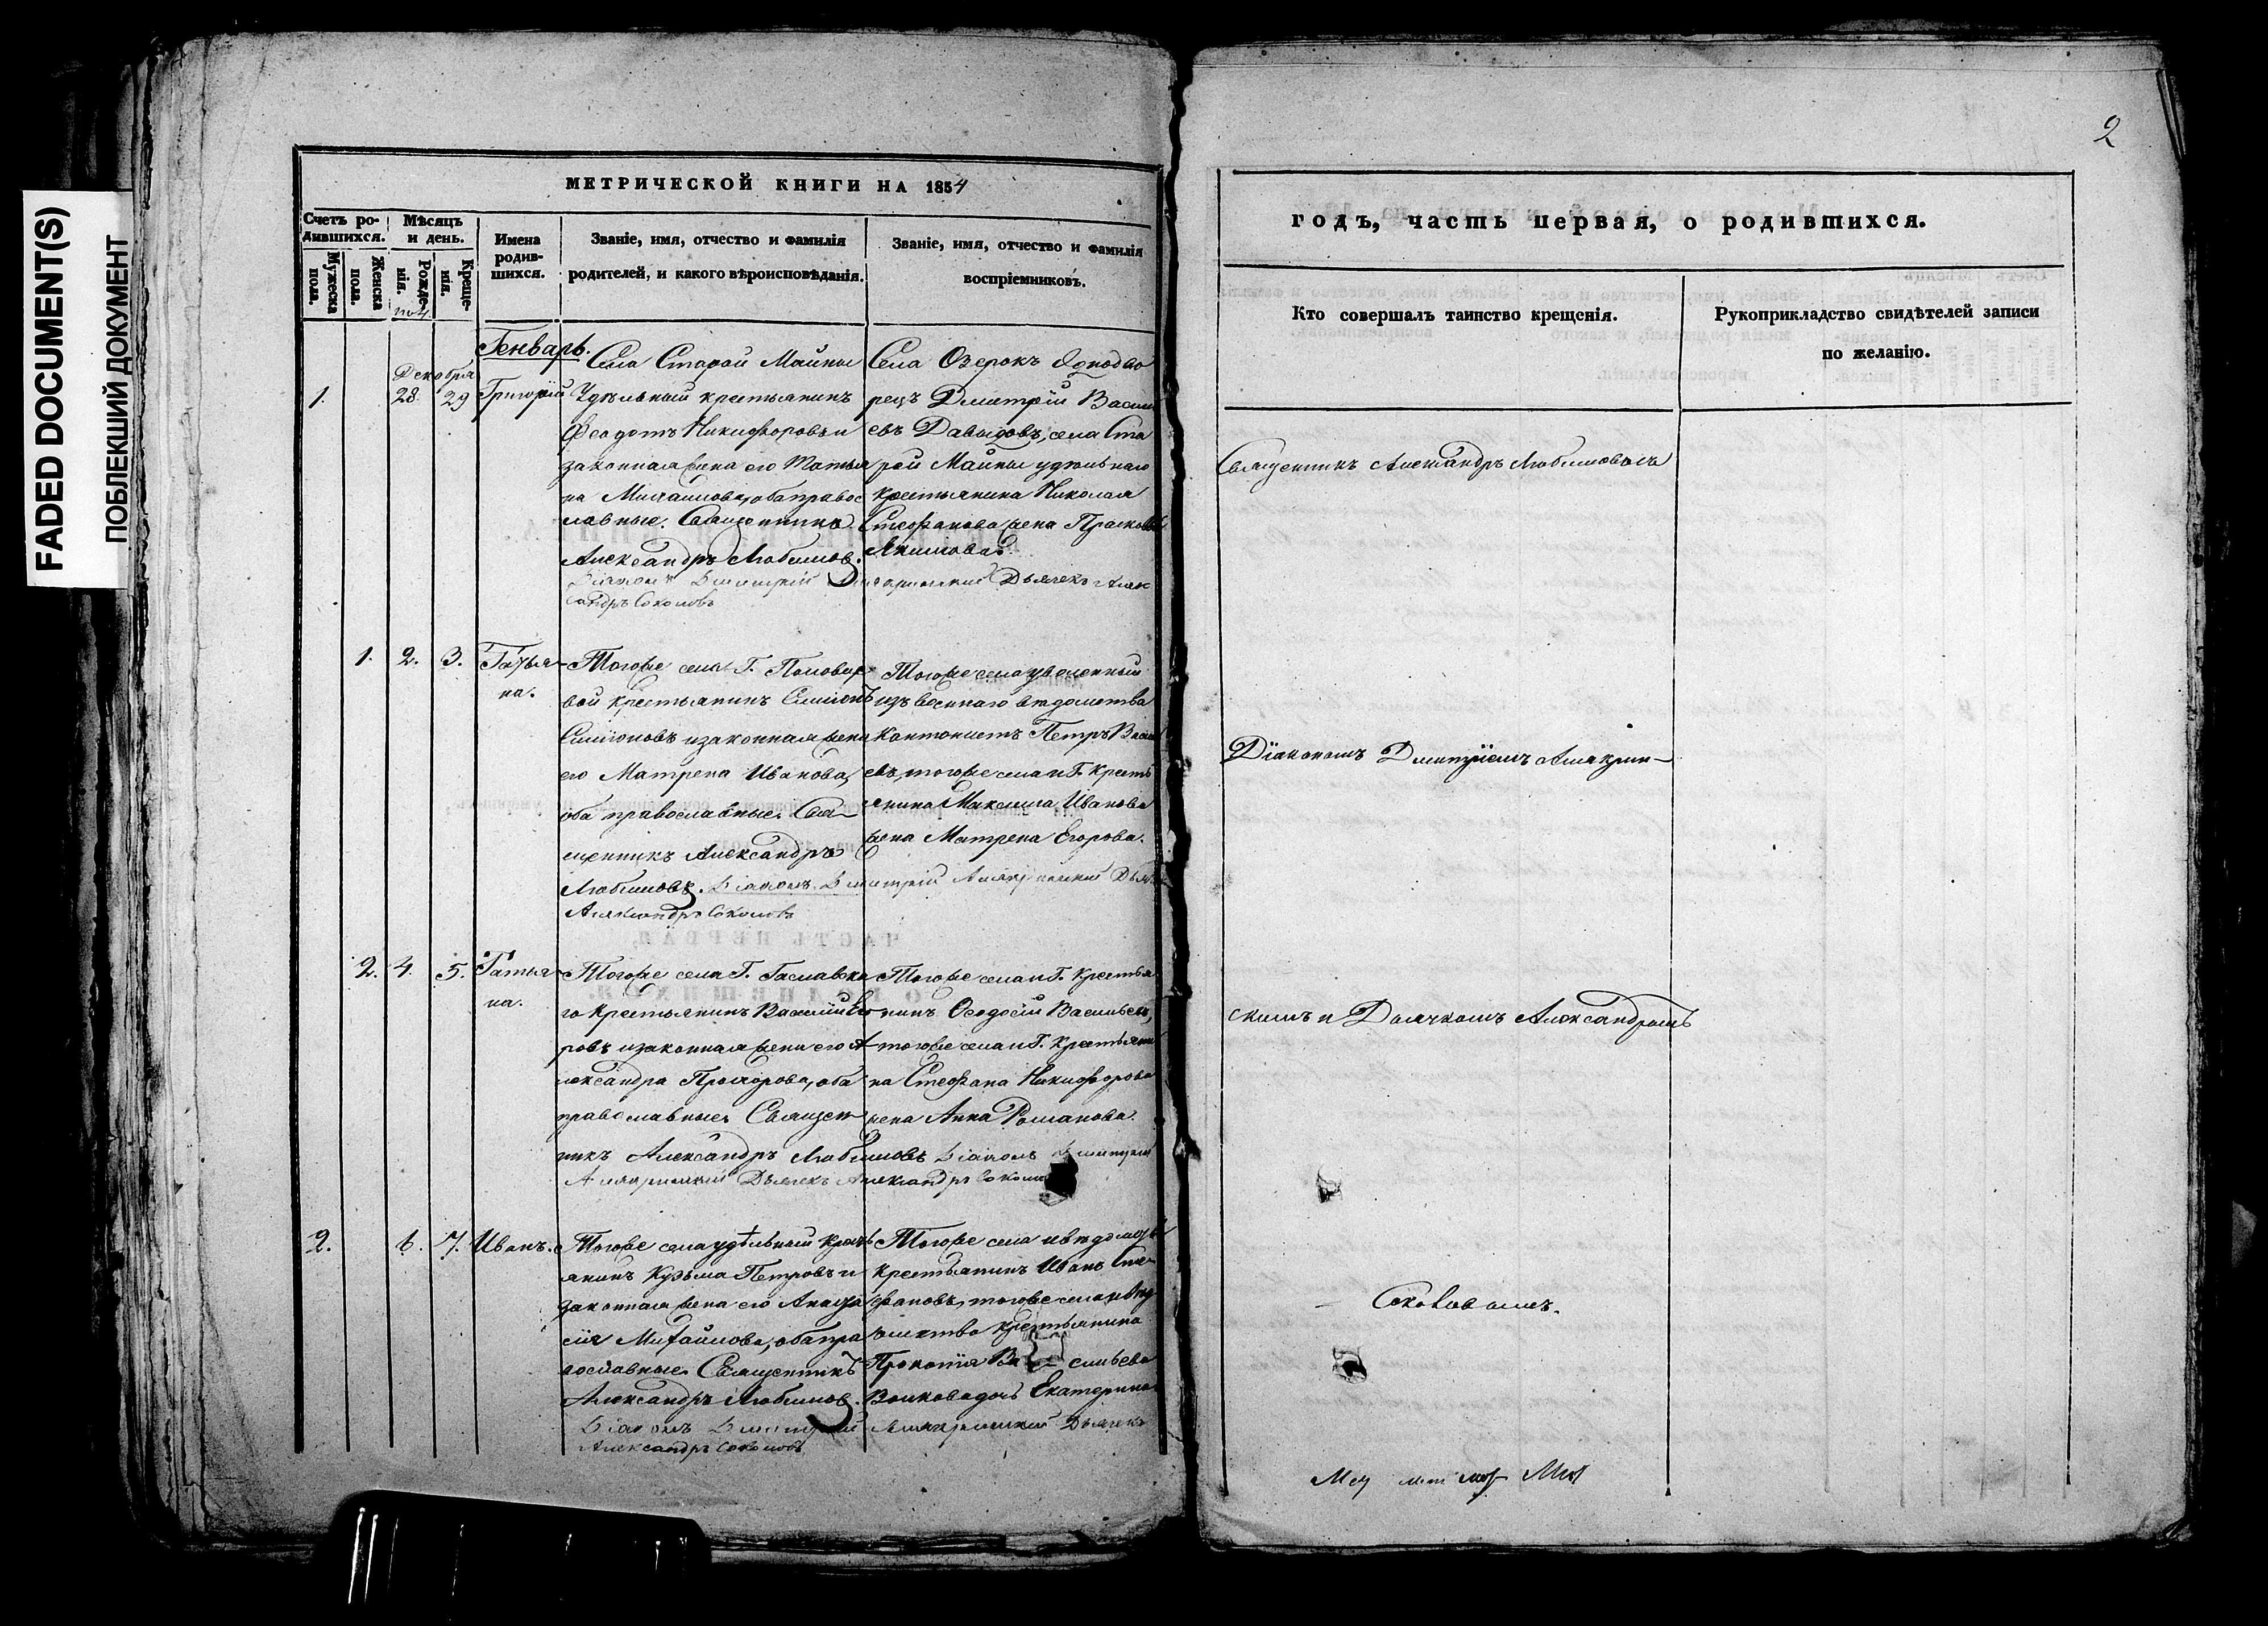 FADED DOCUMENT(S)
ПОБЛЕКШИЙ ДОКУМЕНТ
2
МЕТРИЧЕСКОЙ КНИГИ НА 1854
Счетъ ро-
дившихся.
Мужеска
пола.
Женска
пола.
Мѣсяцъ
и день.
Рожде-
нія.
Креще-
нія.
Имена
родив-
шихся.
Званіе, имя, отчество и фамилія
родителей, и какого вѣроисповѣданія.
Званіе, имя, отчество и фамилія
воспріемниковъ.
Генварь.
1.
Декабря
28. 29
Григорій
Села Старой Майны
Удѣльный крестьянинъ
Феодотъ Никифоровъ и
законная жена его Татья
на Михайлова, оба правос
лавные. Священникъ
Александръ Любимов.
Села Озерокъ Однодво
рецъ Дмитрій Василь
евъ Давыдовъ, села Ста
рой Майны удѣльнаго
крестьянина Николая
Стефанова жена Прасковья
Якимова
Діаконъ Димитрій Дьячекъ Алек
сандръ Соколовъ
1. 2. 3.
Татья-
на.
Тогоже села Г.
вой крестьянинъ Симіонъ
Симіоновъ и законная жена
его Матрена Иванова,
оба православные. Свя-
щенникъ Александръ
Любимовъ. Діаконъ Димитрій
Александръ Соколовъ
Тогоже села уволенный
изъ военнаго вѣдомства
Кантонистъ Петръ Васил
евъ, тогоже села и Г. кресть
янина Максима Иванова
жена Матрена Егорова.
2. 4. 5.
Татья-
на.
Тогоже села Г.
го крестьянинъ Василій Его
ровъ и законная жена его А-
лександра Прохорова, оба
православные. Священ-
никъ Александръ Любимовъ Діаконъ Димитрій
Дьячекъ Александръ
Тогоже села и Г. крестья
нинъ Ѳеодосій Васильевъ,
тогоже села и Г. крестьяни
на Стефана Никифорова
жена Анна Романова.
2. 6. 7. Иванъ.
Тогоже села удѣльный крест
янинъ Кузьма Петровъ и
законная жена его Анаста
сія Михайлова, оба пра
вославные. Священникъ
Александръ Любимов.
Діаконъ Димитрій Дьячекъ
Александръ Соколовъ
Тогоже села и вѣдомства
крестьянинъ Иванъ Сте-
фановъ, тогоже села и вѣд
омства крестьянина
Прокопія Ва- сильева
Волкова дочь Екатерина
годъ, часть первая, о родившихся.
Кто совершалъ таинство крещенія.
Рукоприкладство свидѣтелей записи
по желанію.
Священникъ Александръ Любимовымъ
Діакономъ Дмитріемъ Амакрин-
скимъ и Дьячкомъ Александромъ
Соколовымъ.